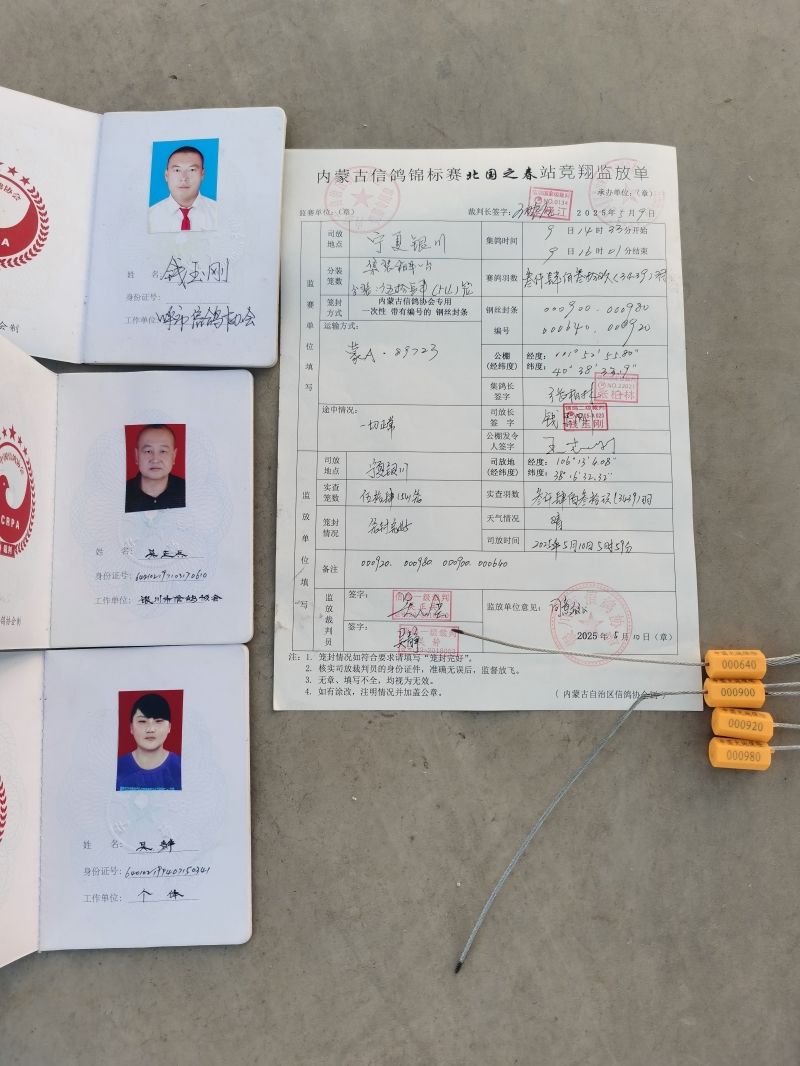 姓 名：钱玉刚
身份证号：
工作单位：呼市信鸽协会
会制
CRPA
姓 名：
身份证号：
工作单位：银川市信鸽协会
姓 名：吴静
身份证号：640102199407150341
工作单位：个体
内蒙古信鸽锦标赛北国之春站竞翔监放单
监赛单位：（章） 裁判长签字： 承办单位：（章）
NO.0134
2025年5月9日
监赛单位填写
司放地点 宁夏银川 集鸽时间 9日14时33分开始
9日16时01分结束
分装笼数 赛鸽羽数 叁仟肆佰叁拾玖（3439）羽
笼封方式 内蒙古信鸽协会专用
一次性 带有编号的 钢丝封条
钢丝封条编号 000900.000980
000640.000920
运输方式：
蒙A·89723
公棚（经纬度） 经度：111°52′55.80″
纬度：40°38′33.9″
集鸽长签字 张柏林
途中情况：
一切正常
司放长签字 钱玉刚
公棚发令人签字
监放单位填写
司放地点 宁夏银川 司放地（经纬度） 经度：106°13′4.08″
纬度：38°16′32.32″
实查笼数 伍拾肆（54）笼 实查羽数 叁仟肆佰叁拾玖（3439）羽
笼封情况 天气情况 晴
司放时间 2025年5月10日5时59分
备注 000920. 000980 000900. 000640
监放裁判员 签字：
签字：吴静
监放单位意见：同意放飞
2025年5月10日（章）
注：1. 笼封情况如符合要求请填写“笼封完好”。
2. 核实司放裁判员的身份证件，准确无误后，监督放飞。
3. 无章、填写不全，均视为无效。
4. 如有涂改，注明情况并加盖公章。
（内蒙古自治区信鸽协会制）
000640
000900
000920
000980